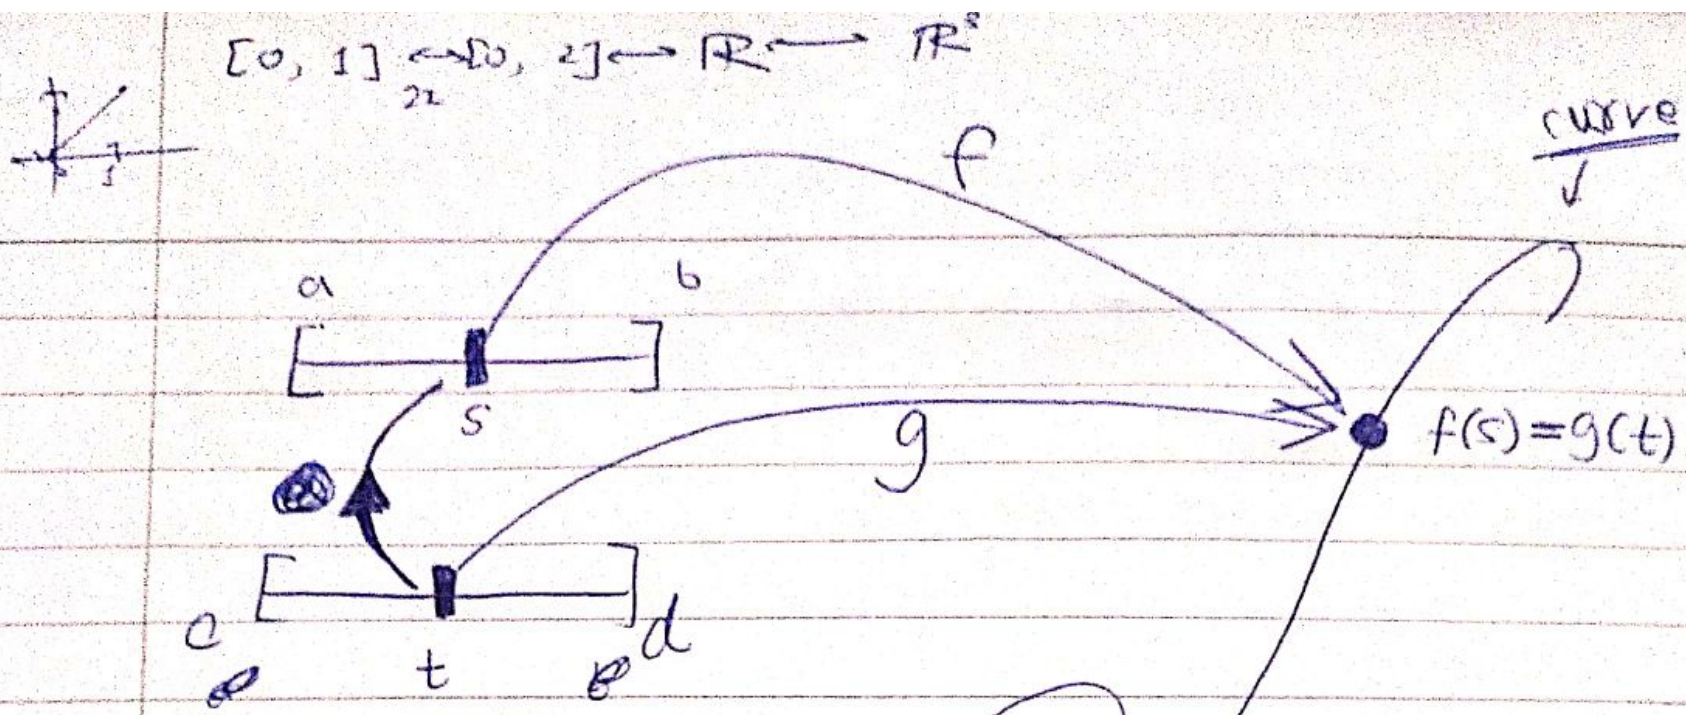 [0, 1] ↔ [0, 2] ↔ ℝ ↔ ℝ
2x
curve
f
1
a b
s
g
f(s)=g(t)
c d
t